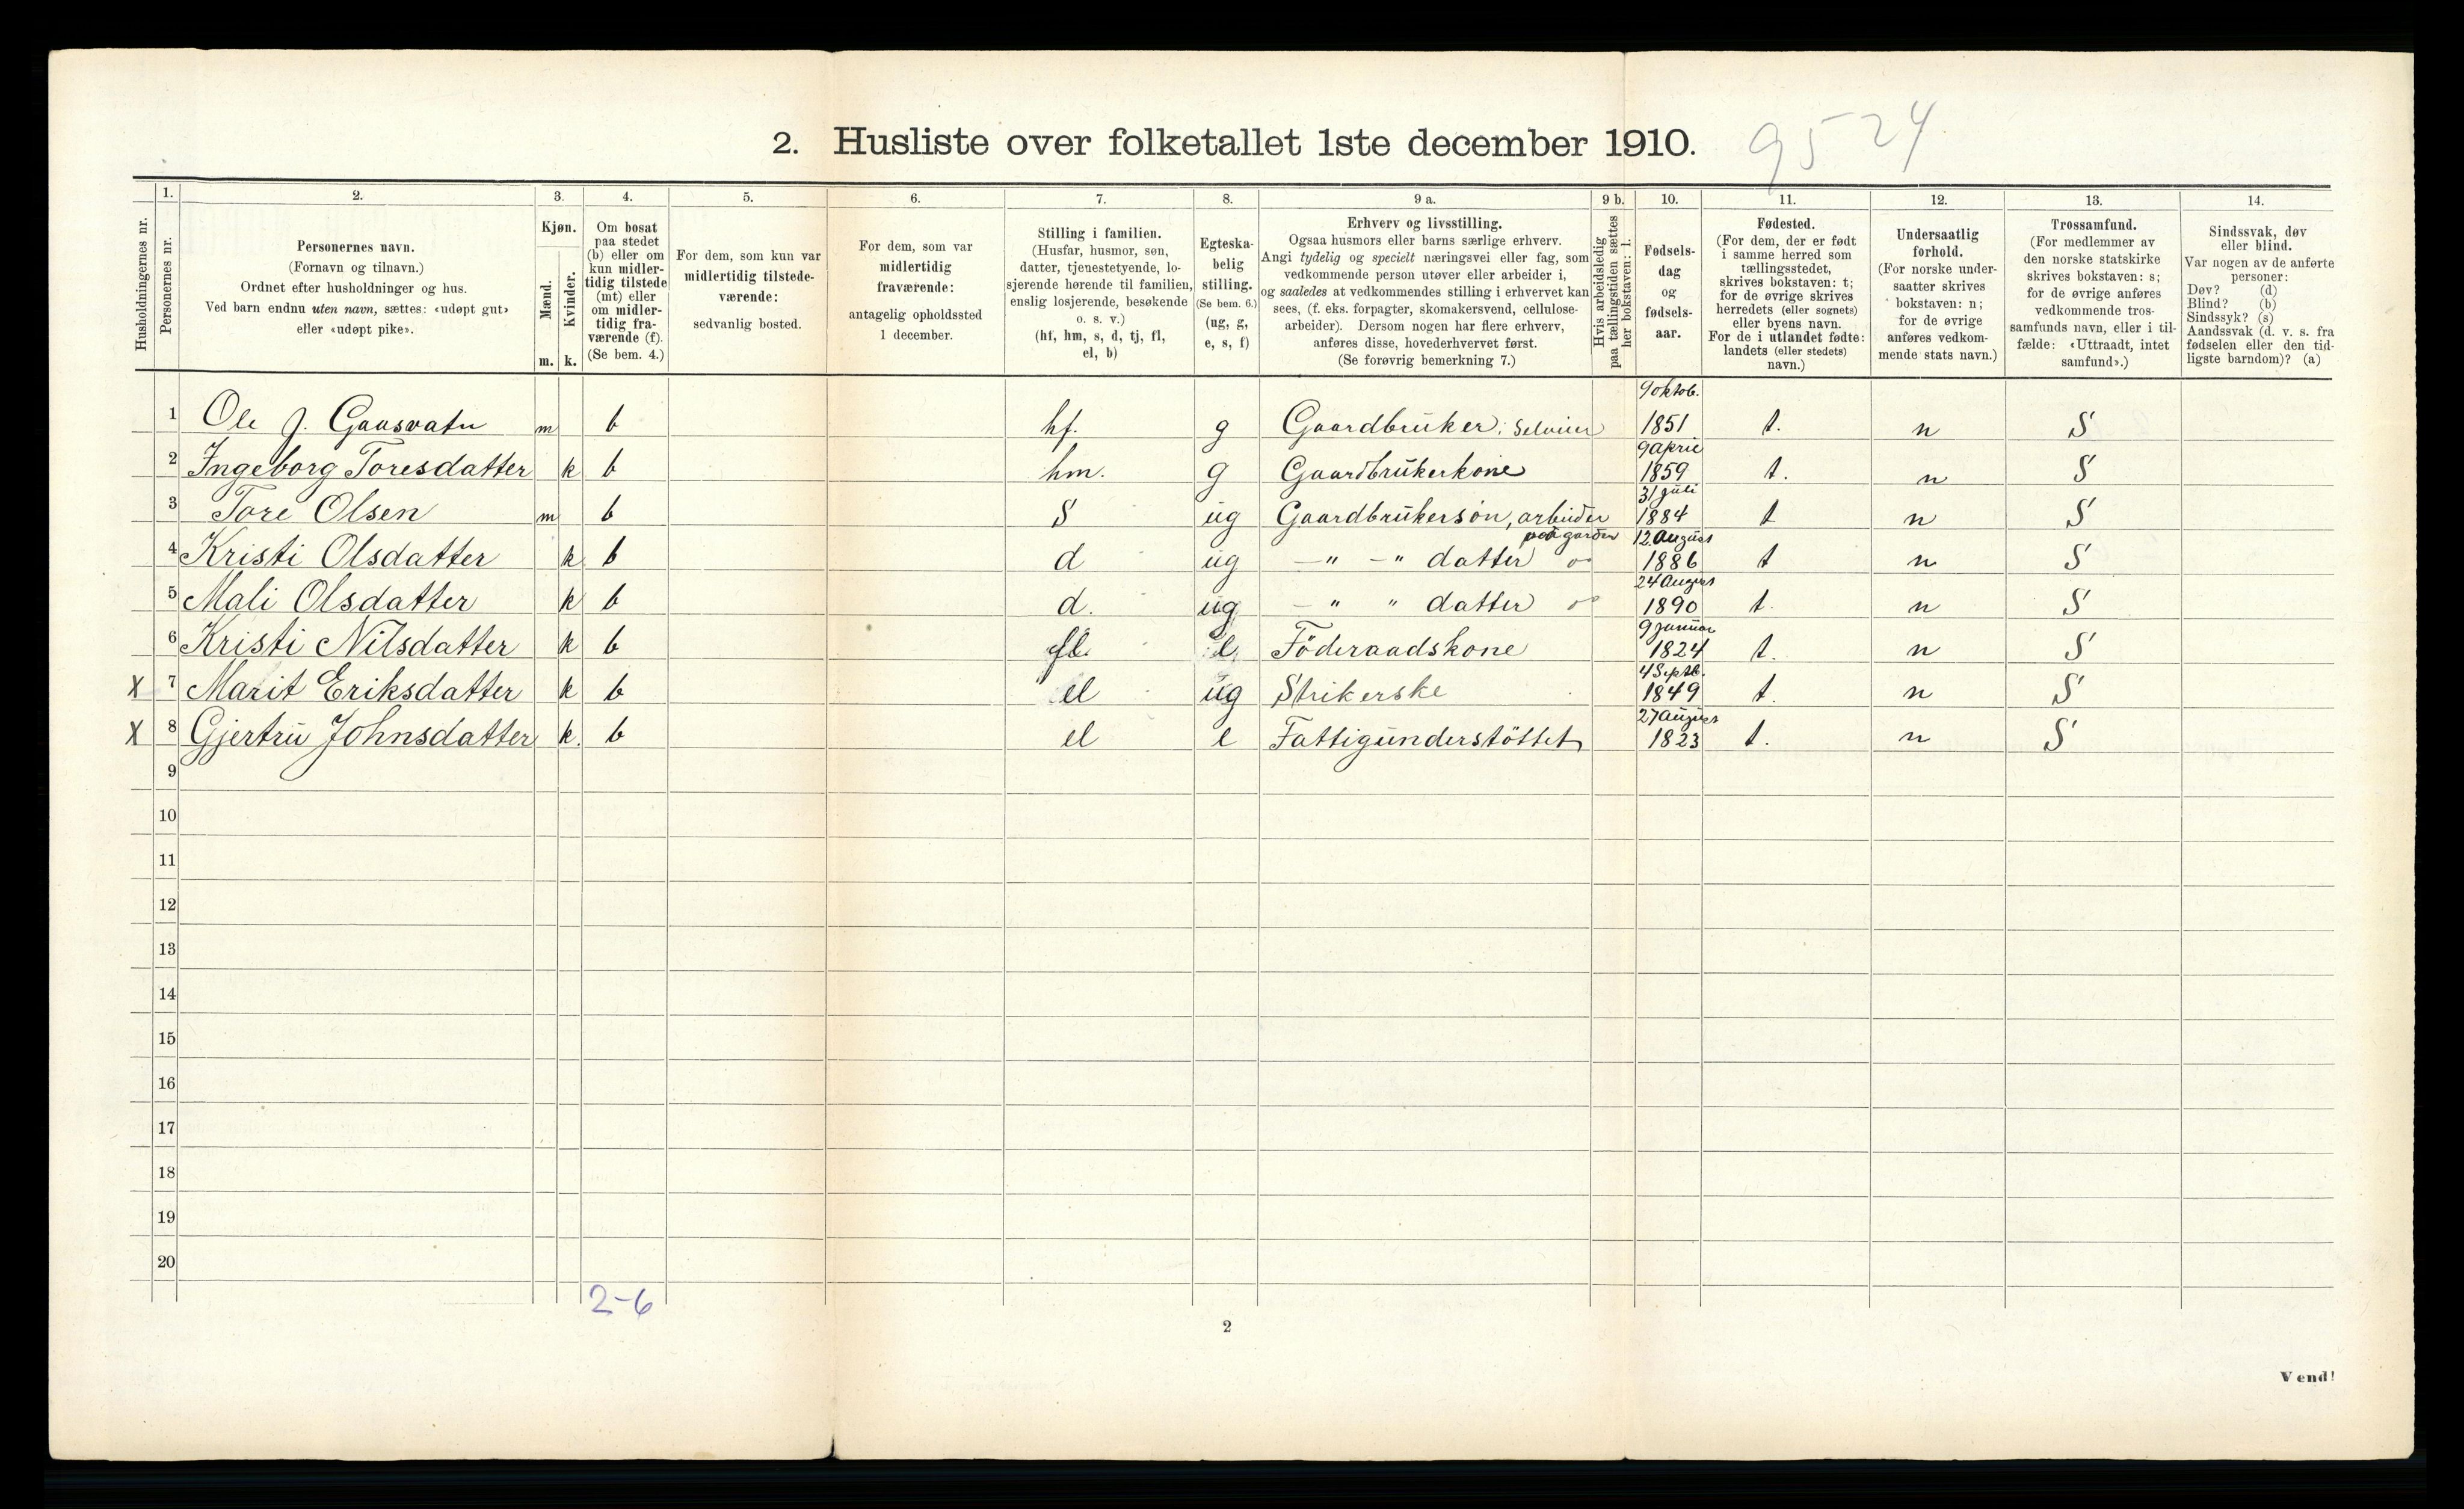 2. Husliste over folketallet 1ste december 1910. 9524
1. 2. 3. 4. 5. 6. 7. 8. 9 a. 9 b. 10. 11. 12. 13. 14.
Husholdningernes nr.
Personernes nr.
Personernes navn.
(Fornavn og tilnavn.)
Ordnet efter husholdninger og hus.
Ved barn endnu uten navn, sættes: «udøpt gut»
eller «udøpt pike».
Kjøn.
Mænd.
Kvinder.
m. k.
Om bosat
paa stedet
(b) eller om
kun midler-
tidig tilstede
(mt) eller
om midler-
tidig fra-
værende (f).
(Se bem. 4.)
For dem, som kun var
midlertidig tilstede-
værende:
sedvanlig bosted.
For dem, som var
midlertidig
fraværende:
antagelig opholdssted
1 december.
Stilling i familien.
(Husfar, husmor, søn,
datter, tjenestetyende, lo-
sjerende hørende til familien,
enslig losjerende, besøkende
o. s. v.)
(hf, hm, s, d, tj, fl,
el, b)
Egteska-
belig
stilling.
(Se bem. 6.)
(ug, g,
e, s, f)
Erhverv og livsstilling.
Ogsaa husmors eller barns særlige erhverv.
Angi tydelig og specielt næringsvei eller fag, som
vedkommende person utøver eller arbeider i,
og saaledes at vedkommendes stilling i erhvervet kan
sees, (f. eks. forpagter, skomakersvend, cellulose-
arbeider). Dersom nogen har flere erhverv,
anføres disse, hovederhvervet først.
(Se forøvrig bemerkning 7.)
Hvis arbeidsledig
paa tællingstiden sættes
her bokstaven: l.
Fødsels-
dag
og
fødsels-
aar.
Fødested.
(For dem, der er født
i samme herred som
tællingsstedet,
skrives bokstaven: t;
for de øvrige skrives
herredets (eller sognets)
eller byens navn.
For de i utlandet fødte:
landets (eller stedets)
navn.)
Undersaatlig
forhold.
(For norske under-
saatter skrives
bokstaven: n;
for de øvrige
anføres vedkom-
mende stats navn.)
Trossamfund.
(For medlemmer av
den norske statskirke
skrives bokstaven: s;
for de øvrige anføres
vedkommende tros-
samfunds navn, eller i til-
fælde: «Uttraadt, intet
samfund».)
Sindssvak, døv
eller blind.
Var nogen av de anførte
personer:
Døv? (d)
Blind? (b)
Sindssyk? (s)
Aandssvak (d. v. s. fra
fødselen eller den tid-
ligste barndom)? (a)
9 oktob.
1 Ole J. Gaasvatn m b hf. g Gaardbruker: Selveier 1851 t. n S
9 April
2 Ingeborg Toresdatter k b hm. g Gaardbrukerkone 1859 t. n S
31 juli
3 Tore Olsen m b S ug Gaardbrukerson, arbeider 1884 t n S
paa garden 12. August
4 Kristi Olsdatter k b d ug —" —" datter o 1886 t n S
24 August
5 Mali Olsdatter k b d. ug — " " datter o 1890 t. n S
9 Januar
6 Kristi Nilsdatter k b fl. e Föderaadskone 1824 t. n S
4 Septb.
X 7 Marit Eriksdatter k b el ug Strikerske 1849 t. n S
27 August
X 8 Gjertru Johnsdatter k. b el e Fattigunderstöttet 1823 t. n S
9
10
11
12
13
14
15
16
17
18
19
20
2-6
2
Vend!